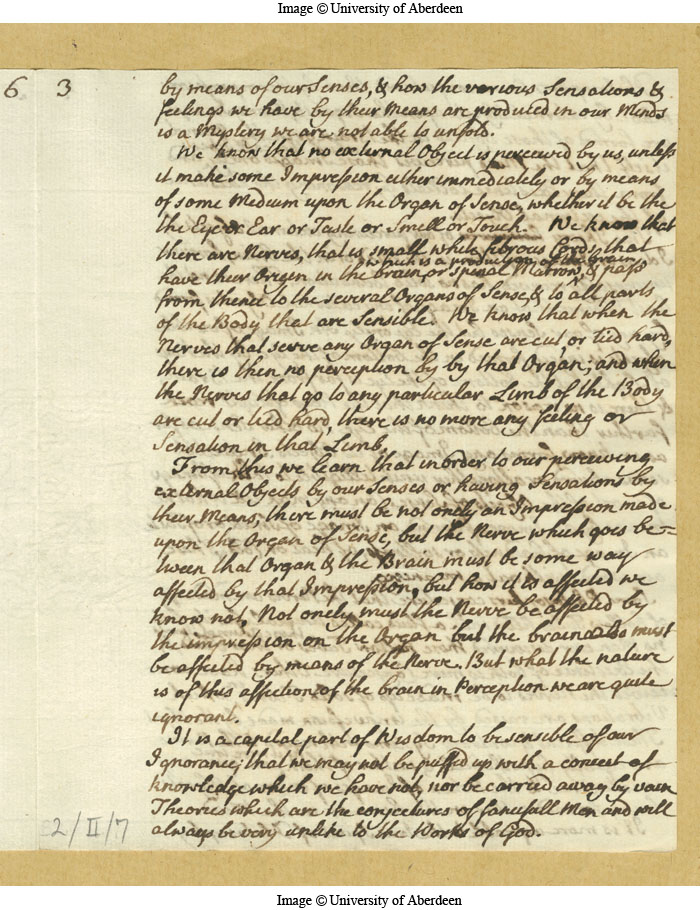 Image © University of Aberdeen
6 3
by means of our Senses, & how the various Sensations &
feelings we have by their Means are produced in our Minds
is a Mystery we are not able to unfold.
We know that no external Object is perceived by us, unless
it make some Impression either immediately or by means
of some Medium upon the Organ of Sense, whether it be the
the Eye or Ear or Taste or Smell or Touch. We know that
there are Nerves, that is small white fibrous Cords, that
which is a production of the brain
have their Origin in the brain, or spinal Marrow, & pass
from thence to the several Organs of Sense, & to all parts
of the Body that are Sensible. We know that when the
Nerves that serve any Organ of Sense are cut, or tied hard,
there is then no perception by by that Organ; and when
the Nerves that go to any particular Limb of the Body
are cut or tied hard, there is no more any feeling or
Sensation in that Limb.
From this we learn that in order to our perceiving
external Objects by our Senses or having Sensations by
their Means, there must be not onely an Impression made
upon the Organ of Sense, but the Nerve which goes be=
tween that Organ & the Brain must be some way
affected by that Impression, but how it is affected we
know not, Not onely must the Nerve be affected by
the impression on the Organ but the brain also must
be affected by means of the Nerve. But what the nature
is of this affection of the brain in Perception we are quite
ignorant.
It is a capital part of Wisdom to be sensible of our
Ignorance; that we may not be puffed up with a conceit of
knowledge which we have not, nor be carried away by vain
Theories which are the conjectures of fancifull Men and will
always be very unlike to the Works of God.
2/II/7
Image © University of Aberdeen